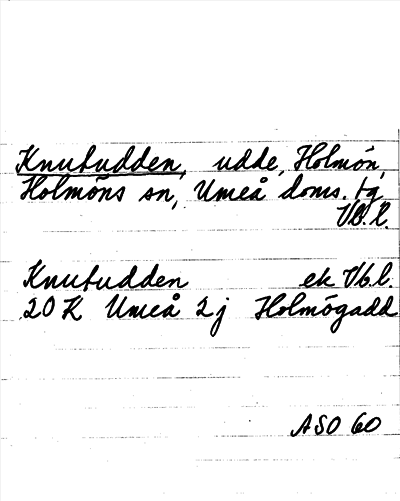 Knutudden, udde, Holmön,
Holmöns sn, Umeå doms. tg
Vb.l.
Knutudden ek Vb.l.
20 K Umeå 2j Holmögadd
ASO 60